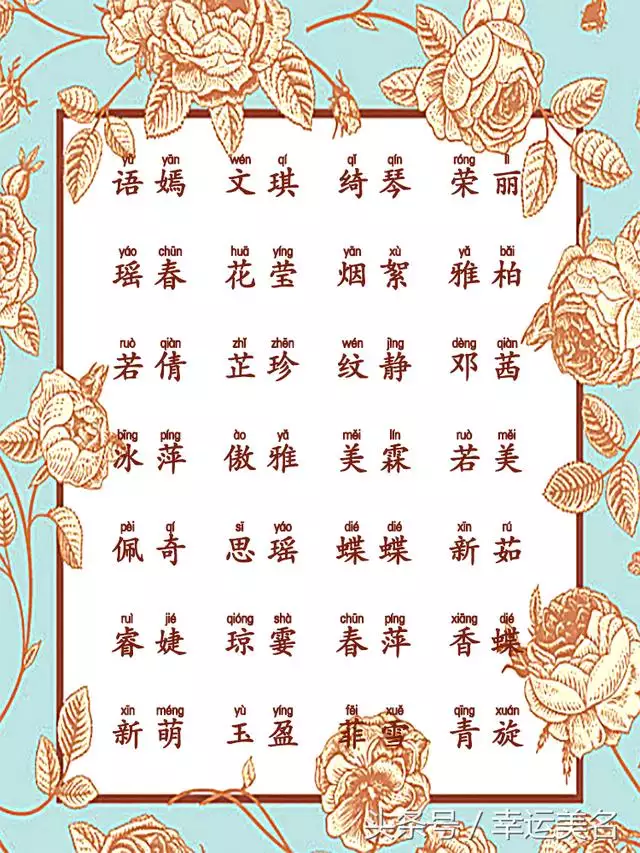 yǔ yān wén qí qǐ qín róng lì
语嫣 文琪 绮琴 荣丽
yáo chūn huā yíng yān xù yǎ bǎi
瑶春 花莹 烟絮 雅柏
ruò qiàn zhǐ zhēn wén jìng dèng qiàn
若倩 芷珍 纹静 邓茜
bīng píng ào yǎ měi lín ruò měi
冰萍 傲雅 美霖 若美
pèi qí sī yáo dié dié xīn rú
佩奇 思瑶 蝶蝶 新茹
ruì jié qióng shà chūn píng xiāng dié
睿婕 琼霎 春萍 香蝶
xīn méng yù yíng fēi xuě qīng xuán
新萌 玉盈 菲雪 青旋
头条号 / 幸运美名